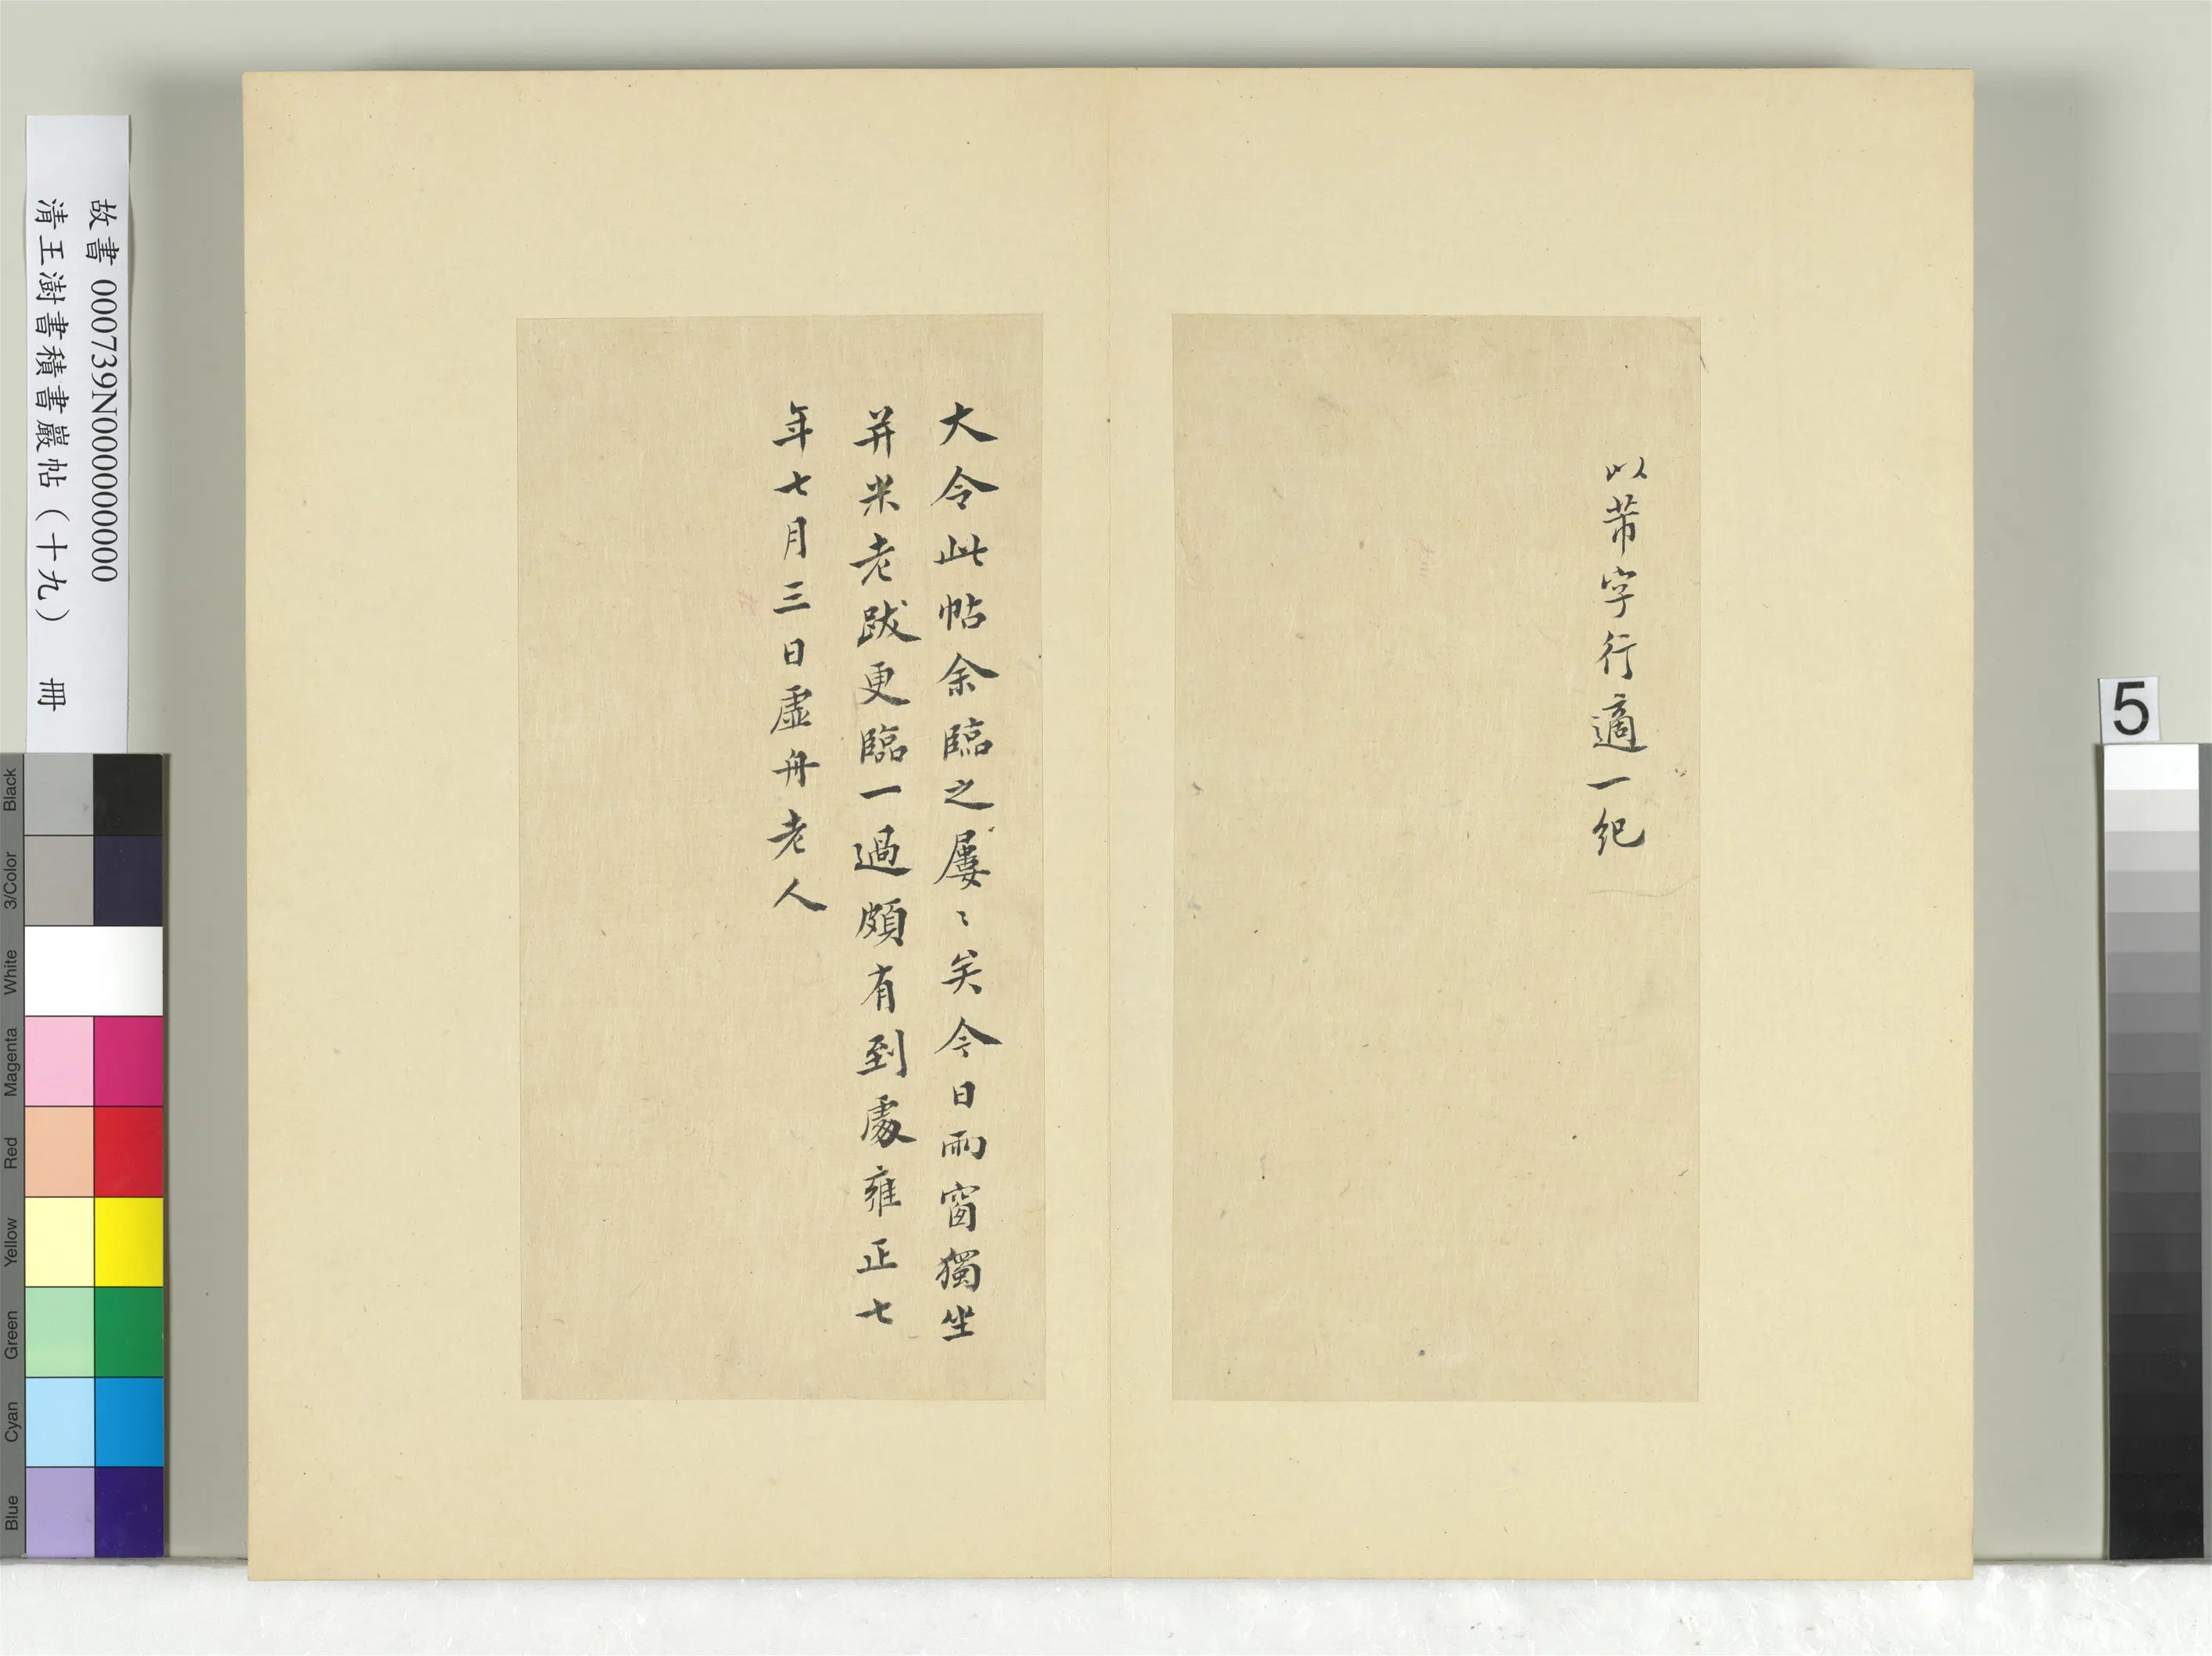 以芾字行適一紀
大令此帖余臨之屢〻矣今日雨窗獨坐
并米老跋更臨一過頗有到處雍正七
年七月三日虛舟老人
故書 000739N000000000
清王澍書積書巖帖（十九） 冊
5
Black
3/Color
White
Magenta
Red
Yellow
Green
Cyan
Blue